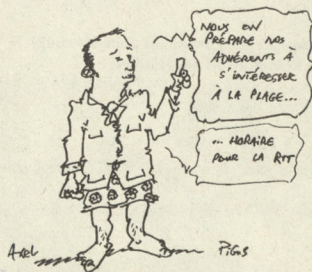 NOUS ON
PRÉPARE NOS
ADHÉRENTS À
S'INTÉRESSER
À LA PLAGE...
... HORAIRE
POUR LA RTT
AXEL
PIGOS